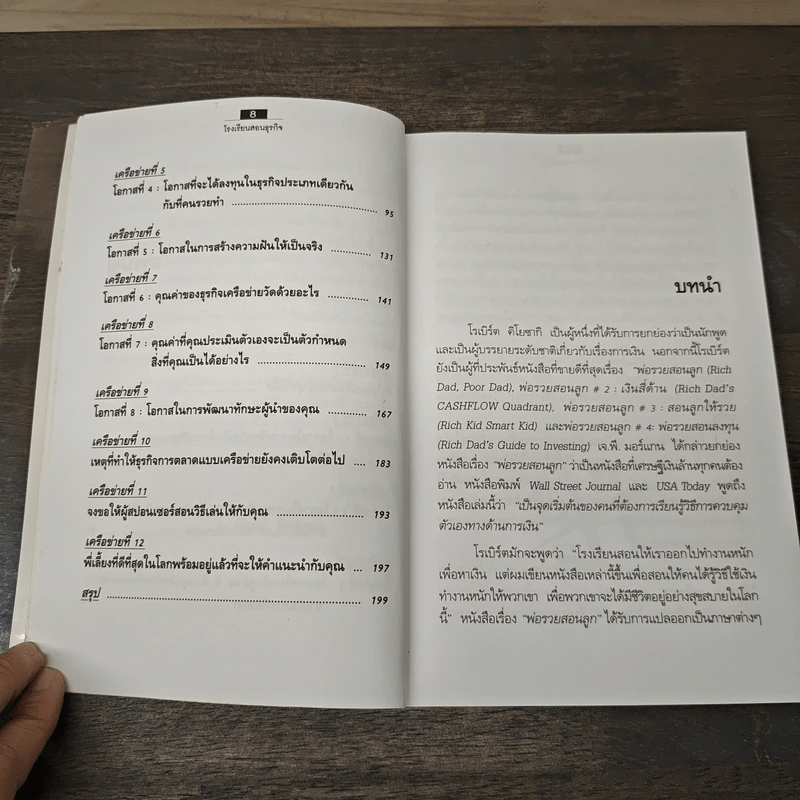 8
โรงเรียนสอนธุรกิจ
เครือข่ายที่ 5
โอกาสที่ 4 : โอกาสที่จะได้ลงทุนในธุรกิจประเภทเดียวกัน
กับที่คนรวยทำ ........................................ 95
เครือข่ายที่ 6
โอกาสที่ 5 : โอกาสในการสร้างความฝันให้เป็นจริง ........... 131
เครือข่ายที่ 7
โอกาสที่ 6 : คุณค่าของธุรกิจเครือข่ายวัดด้วยอะไร ........... 141
เครือข่ายที่ 8
โอกาสที่ 7 : คุณค่าที่คุณประเมินตัวเองจะเป็นตัวกำหนด
สิ่งที่คุณเป็นได้อย่างไร .............................. 149
เครือข่ายที่ 9
โอกาสที่ 8 : โอกาสในการพัฒนาทักษะผู้นำของคุณ ........... 167
เครือข่ายที่ 10
เหตุที่ทำให้ธุรกิจการตลาดแบบเครือข่ายยังคงเติบโตต่อไป .... 183
เครือข่ายที่ 11
จงขอให้ผู้สปอนเซอร์สอนวิธีเล่นให้กับคุณ ........................ 193
เครือข่ายที่ 12
พี่เลี้ยงที่ดีที่สุดในโลกพร้อมอยู่แล้วที่จะให้คำแนะนำกับคุณ ... 197
สรุป ................................................................ 199
บทนำ
โรเบิร์ต คิโยซากิ เป็นผู้หนึ่งที่ได้รับการยกย่องว่าเป็นนักพูด
และเป็นผู้บรรยายระดับชาติเกี่ยวกับเรื่องการเงิน นอกจากนี้โรเบิร์ต
ยังเป็นผู้ที่ประพันธ์หนังสือที่ขายดีที่สุดเรื่อง "พ่อรวยสอนลูก (Rich
Dad, Poor Dad), พ่อรวยสอนลูก # 2 : เงินสี่ด้าน (Rich Dad's
CASHFLOW Quadrant), พ่อรวยสอนลูก # 3 : สอนลูกให้รวย
(Rich Kid Smart Kid) และพ่อรวยสอนลูก # 4: พ่อรวยสอนลงทุน
(Rich Dad's Guide to Investing) เจ.พี. มอร์แกน ได้กล่าวยกย่อง
หนังสือเรื่อง "พ่อรวยสอนลูก" ว่าเป็นหนังสือที่เศรษฐีเงินล้านทุกคนต้อง
อ่าน หนังสือพิมพ์ Wall Street Journal และ USA Today พูดถึง
หนังสือเล่มนี้ว่า "เป็นจุดเริ่มต้นของคนที่ต้องการเรียนรู้วิธีการควบคุม
ตัวเองทางด้านการเงิน"
โรเบิร์ตมักจะพูดว่า "โรงเรียนสอนให้เราออกไปทำงานหนัก
เพื่อหาเงิน แต่ผมเขียนหนังสือเหล่านี้ขึ้นเพื่อสอนให้คนได้รู้วิธีใช้เงิน
ทำงานหนักให้พวกเขา เพื่อพวกเขาจะได้มีชีวิตอยู่อย่างสุขสบายในโลก
นี้" หนังสือเรื่อง "พ่อรวยสอนลูก" ได้รับการแปลออกเป็นภาษาต่างๆ